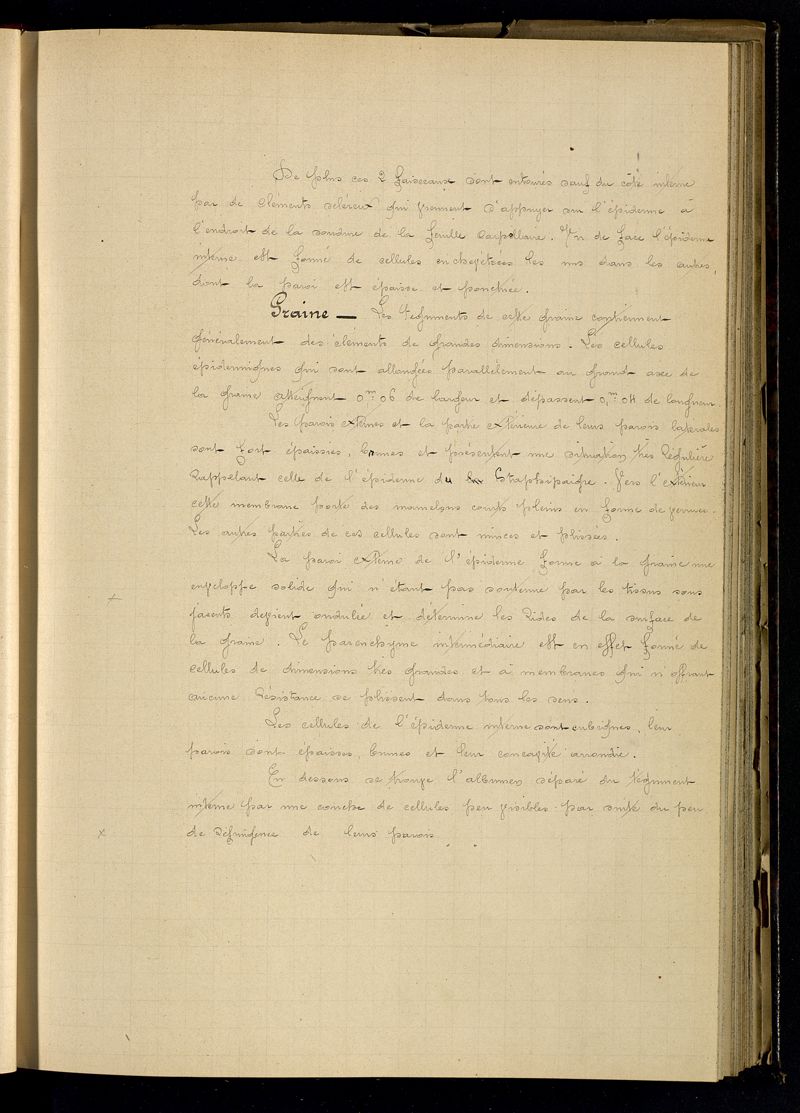 De plus ces 2 faisceaux sont entourés sauf du côté interne
par de éléments scléreux qui viennent s'appuyer sur l'épiderme à
l'endroit de la soudure de la feuille carpellaire. Vu de face l'épiderme
interne est formé de cellules enchevetrées les uns dans les autres,
dont la paroi est épaisse et ponctuée.
Graine — Les téguments de cette graine contiennent
généralement des éléments de grandes dimensions. Les cellules
épidermiques qui sont allongées parallèlement au grand axe de
la graine atteignent 0m.06 de largeur et dépassent 0,m 04 de longueur.
Les parois externes et la partie extérieure de leurs parois latérales
sont fort épaissies, brunes et présentent une situation très régulière
rappelant celle de l'épiderme du Staphisaigre. Vers l'extérieur
cette membrane porte des mamelons courts pleins en forme de verrue.
Les autres parties de ces cellules sont minces et plissées.
La paroi externe de l'épiderme forme à la graine une
enveloppe solide qui n'étant pas soutenue par les tissus sous
jacents devient ondulée et détermine les rides de la surface de
la graine. Le parenchyme intermédiaire est en effet formé de
cellules de dimensions très grandes et à membranes qui n'offrant
aucune résistance se plissent dans tous les sens.
Les cellules de l'épiderme interne sont cubiques, leur
parois sont épaisses, brunes et leur concavité arrondie.
En dessous se trouve l'albumen séparé du tégument
interne par une couche de cellules peu visibles par suite du peu
de de leurs parois